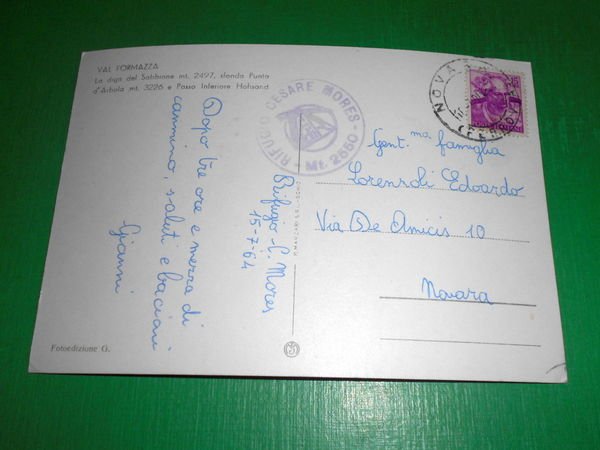 VAL FORMAZZA
La diga del Sabbione mt. 2497, sfondo Punta
d'Arbola mt. 3226 e Passo Inferiore Hohsand
Rifugio C. Mores
15-7-64
Dopo tre ore e mezza di
cammino, saluti e bacioni
Gianni
RIFUGIO CESARE MORES - Mt. 2550 -
NOVARA
(FERROVIA)
15
Gent.ma famiglia
Lorenzoli Edoardo
Via De Amicis 10
Novara
Fotoedizione G.